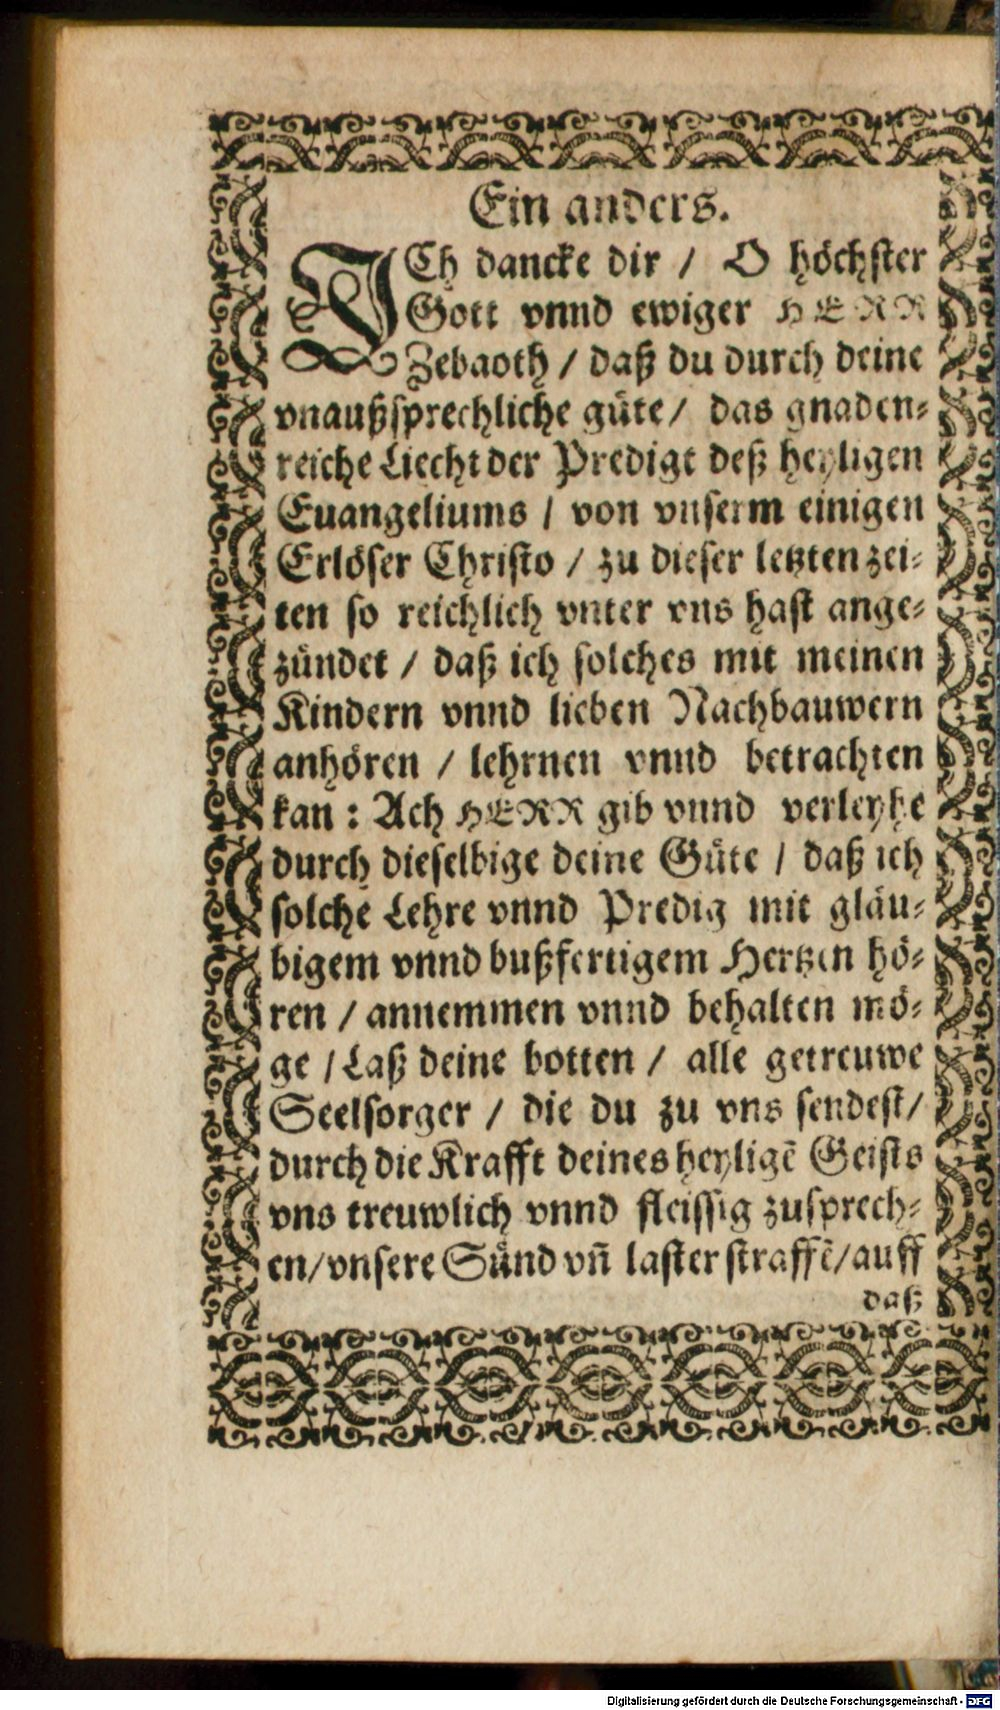 Ein anders.
ICh dancke dir / O höchster
Gott vnnd ewiger HERR
Zebaoth / daß du durch deine
vnaußsprechliche güte / das gnaden-
reiche Liecht der Predigt deß heyligen
Euangeliums / von vnserm einigen
Erlöser Christo / zu dieser letzten zei-
ten so reichlich vnter vns hast ange-
zündet / daß ich solches mit meinen
Kindern vnnd lieben Nachbauwern
anhören / lehrnen vnnd betrachten
kan : Ach HERR gib vnnd verleyhe
durch dieselbige deine Güte / daß ich
solche Lehre vnnd Predig mit gläu-
bigem vnnd bußfertigem Hertzen hö-
ren / annemmen vnnd behalten mö-
ge / Laß deine botten / alle getreuwe
Seelsorger / die du zu vns sendest /
durch die Krafft deines heyligẽ Geists
vns treuwlich vnnd fleissig zusprech-
en / vnsere Sünd vñ laster straffẽ / auff
daß
Digitalisierung gefördert durch die Deutsche Forschungsgemeinschaft - DFG